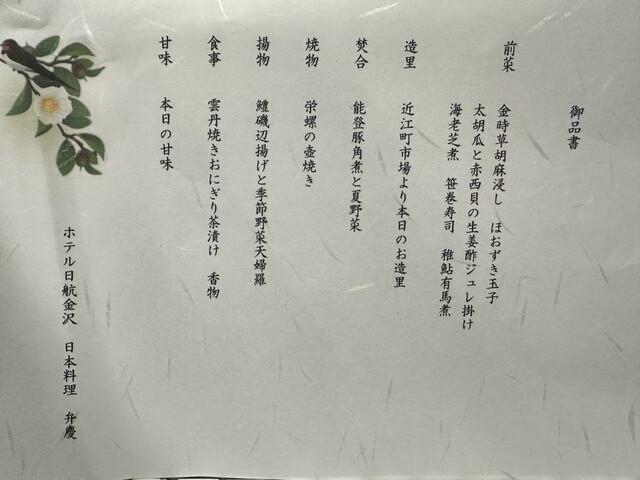 御品書
前菜
金時草胡麻浸し ほおずき玉子
太胡瓜と赤西貝の生姜酢ジュレ掛け
海老芝煮 笹巻寿司 稚鮎有馬煮
造里 近江町市場より本日のお造里
焚合 能登豚角煮と夏野菜
焼物 栄螺の壺焼き
揚物 鱧磯辺揚げと季節野菜天婦羅
食事 雲丹焼きおにぎり茶漬け 香物
甘味 本日の甘味
ホテル日航金沢 日本料理 弁慶